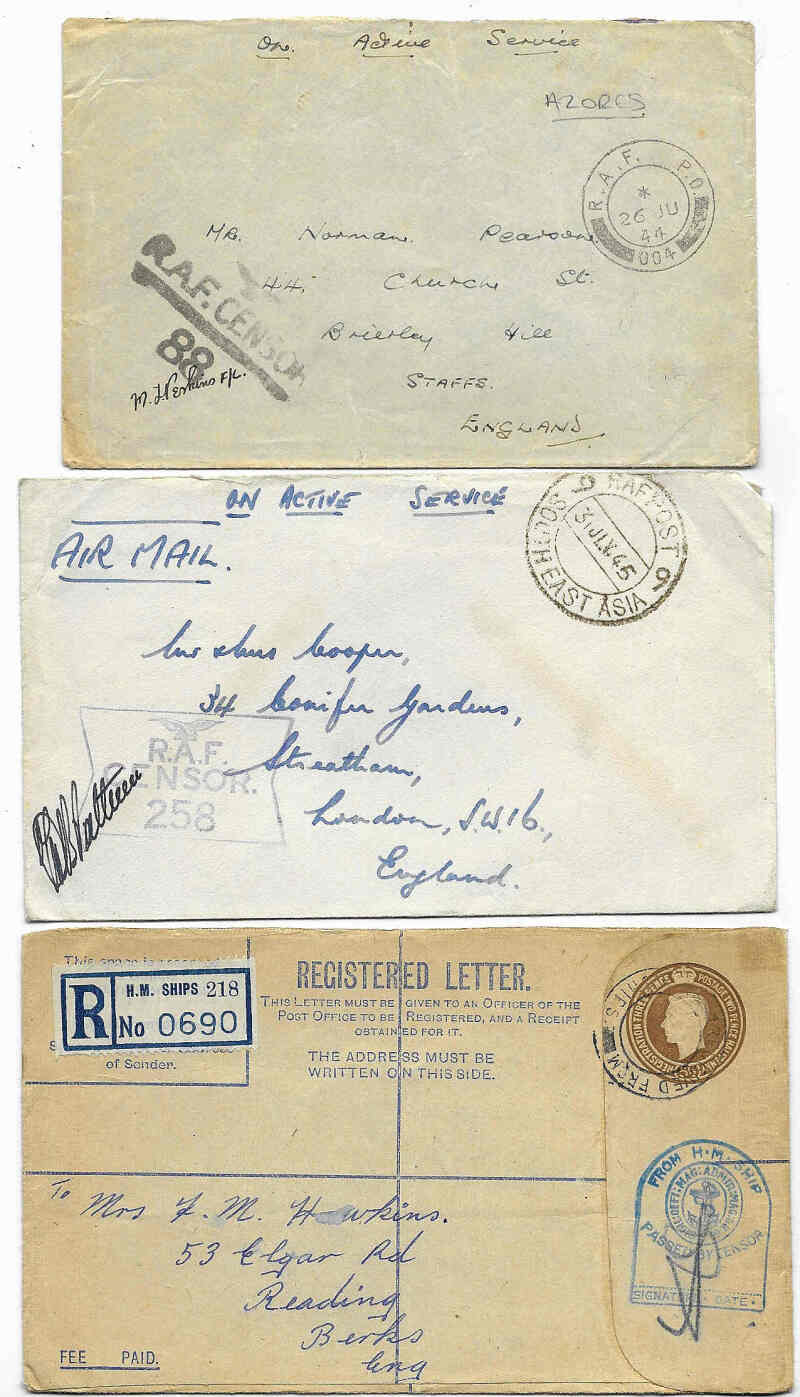 On Active Service
AZORES
R.A.F. P.O.
*
26 JU
44
004
Mr. Norman Pearson
44, Church St.
Brierley Hill
STAFFS.
ENGLAND.
R.A.F. CENSOR
88
M. J. Perkins F/L.
ON ACTIVE SERVICE
AIR MAIL.
RAF POST
9 9
31 JLY.45
SOUTH EAST ASIA
Mr & Mrs Cooper,
34 Conifer Gardens,
Streatham,
London, S.W.16.,
England.
R.A.F.
CENSOR.
258
This space is
of Sender.
R
H.M. SHIPS 218
No 0690
REGISTERED LETTER.
THIS LETTER MUST BE GIVEN TO AN OFFICER OF THE
POST OFFICE TO BE REGISTERED, AND A RECEIPT
OBTAINED FOR IT.
THE ADDRESS MUST BE
WRITTEN ON THIS SIDE.
REGISTRATION THREE PENCE POSTAGE TWO PENCE HALFPENNY
FROM H.M. SHIP
PASSED BY CENSOR
SIGNATURE DATE
To Mrs F. M. Hawkins.
53 Elgar Rd
Reading
Berks
Eng
FEE PAID.